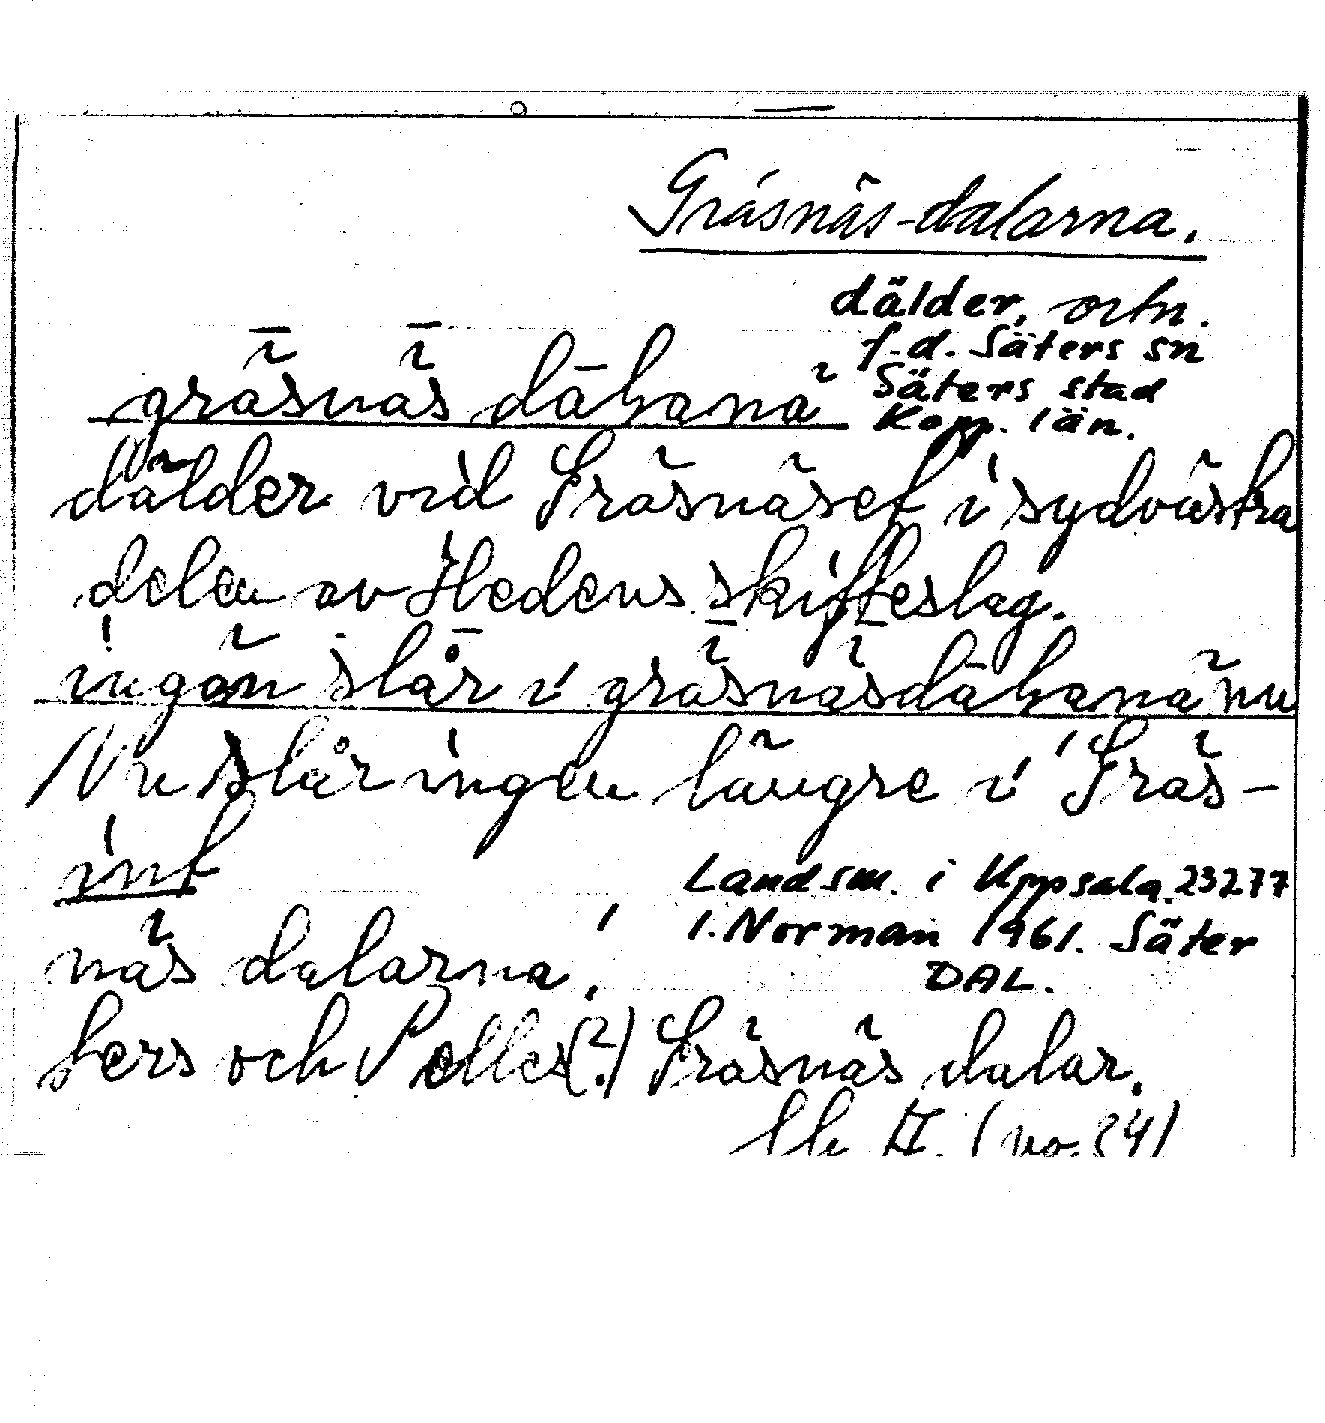 Gräsnäs-dalarna.
dälder, ortn.
f.d. Säters sn
Säters stad
Kopp. län.
gräsnäs dāłanä
dälder vid Gräsnäset i sydvästra
delen av Hedens skifteslag.
ingän slår i gräsnäsdāłanä nu
Nu slår ingen längre i 'Gräs-
int
Landsm. i Uppsala. 23277
I. Norman 1961. Säter
DAL.
näs dalarna.'
Pers och Pelles(?) Gräsnäs dalar.
II. (no. 24)